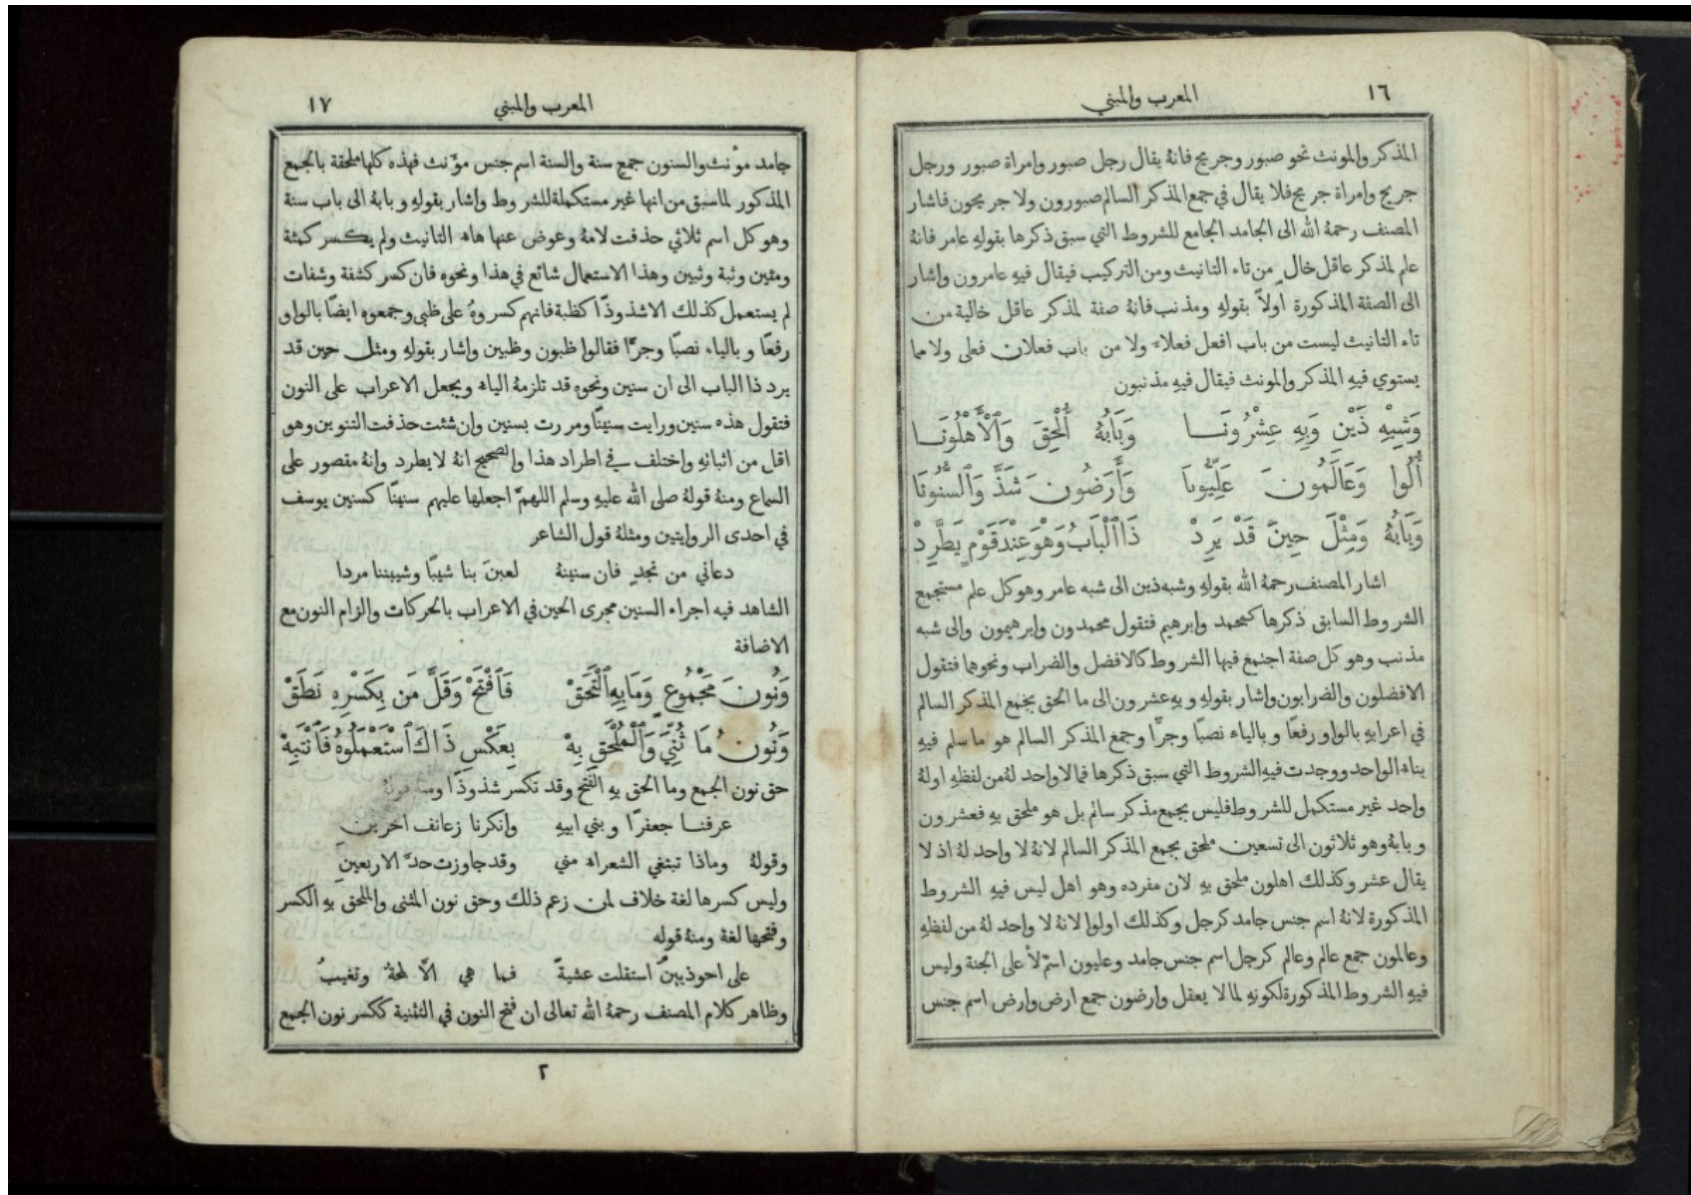 ١٦
المعرب والمبني
المذكر والمونث نحو صبور وجريح فانهُ يقال رجل صبور وامراة صبور ورجل
جريح وامراة جريح فلا يقال في جمع المذكر السالم صبورون ولا جريحون فاشار
المصنف رحمهُ الله الى الجامد الجامع للشروط التي سبق ذكرها بقولهِ عامر فانهُ
علم لمذكر عاقل خالٍ من تاء التانيث ومن التركيب فيقال فيهِ عامرون واشار
الى الصفة المذكورة اولاً بقولهِ ومذنب فانهُ صفة لمذكر عاقل خالية من
تاء التانيث ليست من باب افعل فعلاء ولا من باب فعلان فعلى ولا مما
يستوي فيهِ المذكر والمونث فيقال فيهِ مذنبون
وَشِبْهِ ذَيْنِ وَبِهِ عِشْرُونَــا وَبَابُهُ أُلْحِقَ وَٱلْأَهْلُونَــا
أُلُوا وَعَالَمُونَ عِلِّيُّونَا وَأَرَضُونَ شَذَّ وَٱلسِّنُونَا
وَبَابُهُ وَمِثْلَ حِينٍ قَدْ يَرِدْ ذَا ٱلْبَابُ وَهْوَ عِنْدَ قَوْمٍ يَطَّرِدْ
اشار المصنف رحمهُ الله بقولهِ وشبه ذين الى شبه عامر وهو كل علم مستجمع
الشروط السابق ذكرها كمحمد وابرهيم فتقول محمدون وابرهيمون والى شبه
مذنب وهو كل صفة اجتمع فيها الشروط كالافضل والضراب ونحوهما فتقول
الافضلون والضرابون واشار بقولهِ وبهِ عشرون الى ما الحق بجمع المذكر السالم
في اعرابهِ بالواو رفعًا وبالياء نصبًا وجرًّا وجمع المذكر السالم هو ما سلم فيهِ
بناء الواحد ووجدت فيهِ الشروط التي سبق ذكرها فما لا واحد لهُ من لفظهِ او لهُ
واحد غير مستكمل للشروط فليس بجمع مذكر سالم بل هو ملحق بهِ فعشرون
وبابهُ وهو ثلاثون الى تسعين ملحق بجمع المذكر السالم لانهُ لا واحد لهُ اذ لا
يقال عشر وكذلك اهلون ملحق بهِ لان مفرده وهو اهل ليس فيهِ الشروط
المذكورة لانهُ اسم جنس جامد كرجل وكذلك اولوا لانهُ لا واحد لهُ من لفظهِ
وعالمون جمع عالم وعالم كرجل اسم جنس جامد وعليون اسم لأعلى الجنة وليس
فيهِ الشروط المذكورة لكونهِ لما لا يعقل وارضون جمع ارض وارض اسم جنس
المعرب والمبني
١٧
جامد مؤنث والسنون جمع سنة والسنة اسم جنس مؤنث فهذه كلها ملحقة بالجمع
المذكور لما سبق من انها غير مستكملة للشروط واشار بقولهِ وبابهُ الى باب سنة
وهو كل اسم ثلاثي حذفت لامهُ وعوض عنها هاء التانيث ولم يكسر كمئة
ومئين وثبة وثبين وهذا الاستعمال شائع في هذا ونحوه فان كسر كشفة وشفات
لم يستعمل كذلك الا شذوذًا كظبة فانهم كسروهُ على ظبى وجمعوه ايضًا بالواو
رفعًا وبالياء نصبًا وجرًّا فقالوا ظبون وظبين واشار بقولهِ ومثل حين قد
يرد ذا الباب الى ان سنين ونحوه قد تلزمهُ الياء ويجعل الاعراب على النون
فتقول هذه سنين ورايت سنينًا ومررت بسنين وان شئت حذفت التنوين وهو
اقل من اثباتهِ واختلف في اطراد هذا والصحيح انهُ لا يطرد وانهُ مقصور على
السماع ومنهُ قولهُ صلى الله عليهِ وسلم اللهمَّ اجعلها عليهم سنينًا كسنين يوسف
في احدى الروايتين ومثلهُ قول الشاعر
دعاني من نجدٍ فان سنينهُ لعبنَ بنا شيبًا وشيبننا مردا
الشاهد فيه اجراء السنين مجرى الحين في الاعراب بالحركات والزام النون مع
الاضافة
وَنُونَ مَجْمُوعٍ وَمَا بِهِ ٱلْتَحَقْ فَٱفْتَحْ وَقَلَّ مَن بِكَسْرِهِ نَطَقْ
وَنُونُ مَا ثُنِّيَ وَٱلْمُلْحَقِ بِهْ بِعَكْسِ ذَاكَ ٱسْتَعْمَلُوهُ فَٱنْتَبِهْ
حق نون الجمع وما الحق بهِ الفتح وقد تكسر شذوذًا ومنهُ قولهُ
عرفنــا جعفرًا وبني ابيهِ وانكرنا زعانف اخرينِ
وقولهُ وماذا تبتغي الشعراء مني وقد جاوزت حدَّ الاربعينِ
وليس كسرها لغة خلاف لمن زعم ذلك وحق نون المثنى والملحق بهِ الكسر
وفتحها لغة ومنهُ قوله
على احوذيينَ استقلت عشيةً فما هي الَّا لمحةٌ وتغيبُ
وظاهر كلام المصنف رحمهُ الله تعالى ان فتح النون في التثنية ككسر نون الجمع
٢